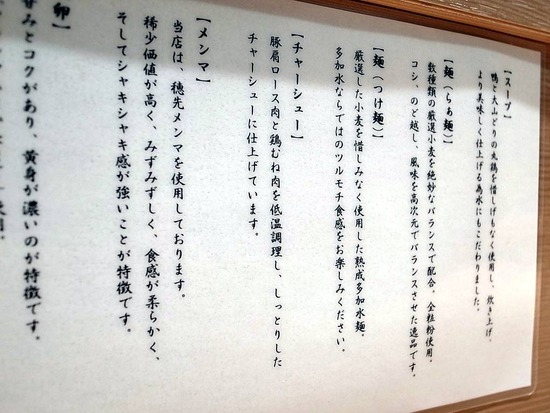 【スープ】
鴨と大山どりの丸鶏を惜しげもなく使用し、炊き上げ、
より美味しく仕上げる為水にもこだわりました。
【麺（らぁ麺）】
数種類の厳選小麦を絶妙なバランスで配合。全粒粉使用。
コシ、のど越し、風味を高次元でバランスさせた逸品です。
【麺（つけ麺）】
厳選した小麦を惜しみなく使用した熟成多加水麺。
多加水ならではのツルモチ食感をお楽しみください。
【チャーシュー】
豚肩ロース肉と鶏むね肉を低温調理し、しっとりした
チャーシューに仕上げています。
【メンマ】
当店は、穂先メンマを使用しております。
稀少価値が高く、みずみずしく、食感が柔らかく、
そしてシャキシャキ感が強いことが特徴です。
卵】
甘みとコクがあり、黄身が濃いのが特徴です。